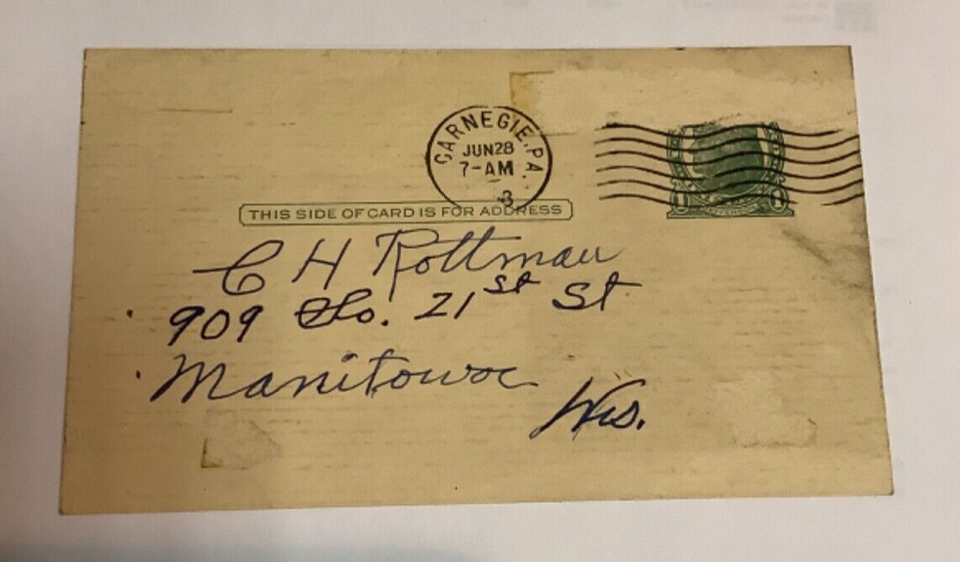 CARNEGIE, PA.
JUN 28
7-AM
THIS SIDE OF CARD IS FOR ADDRESS
C H Rottman
909 So. 21st St
Manitowoc
Wis.